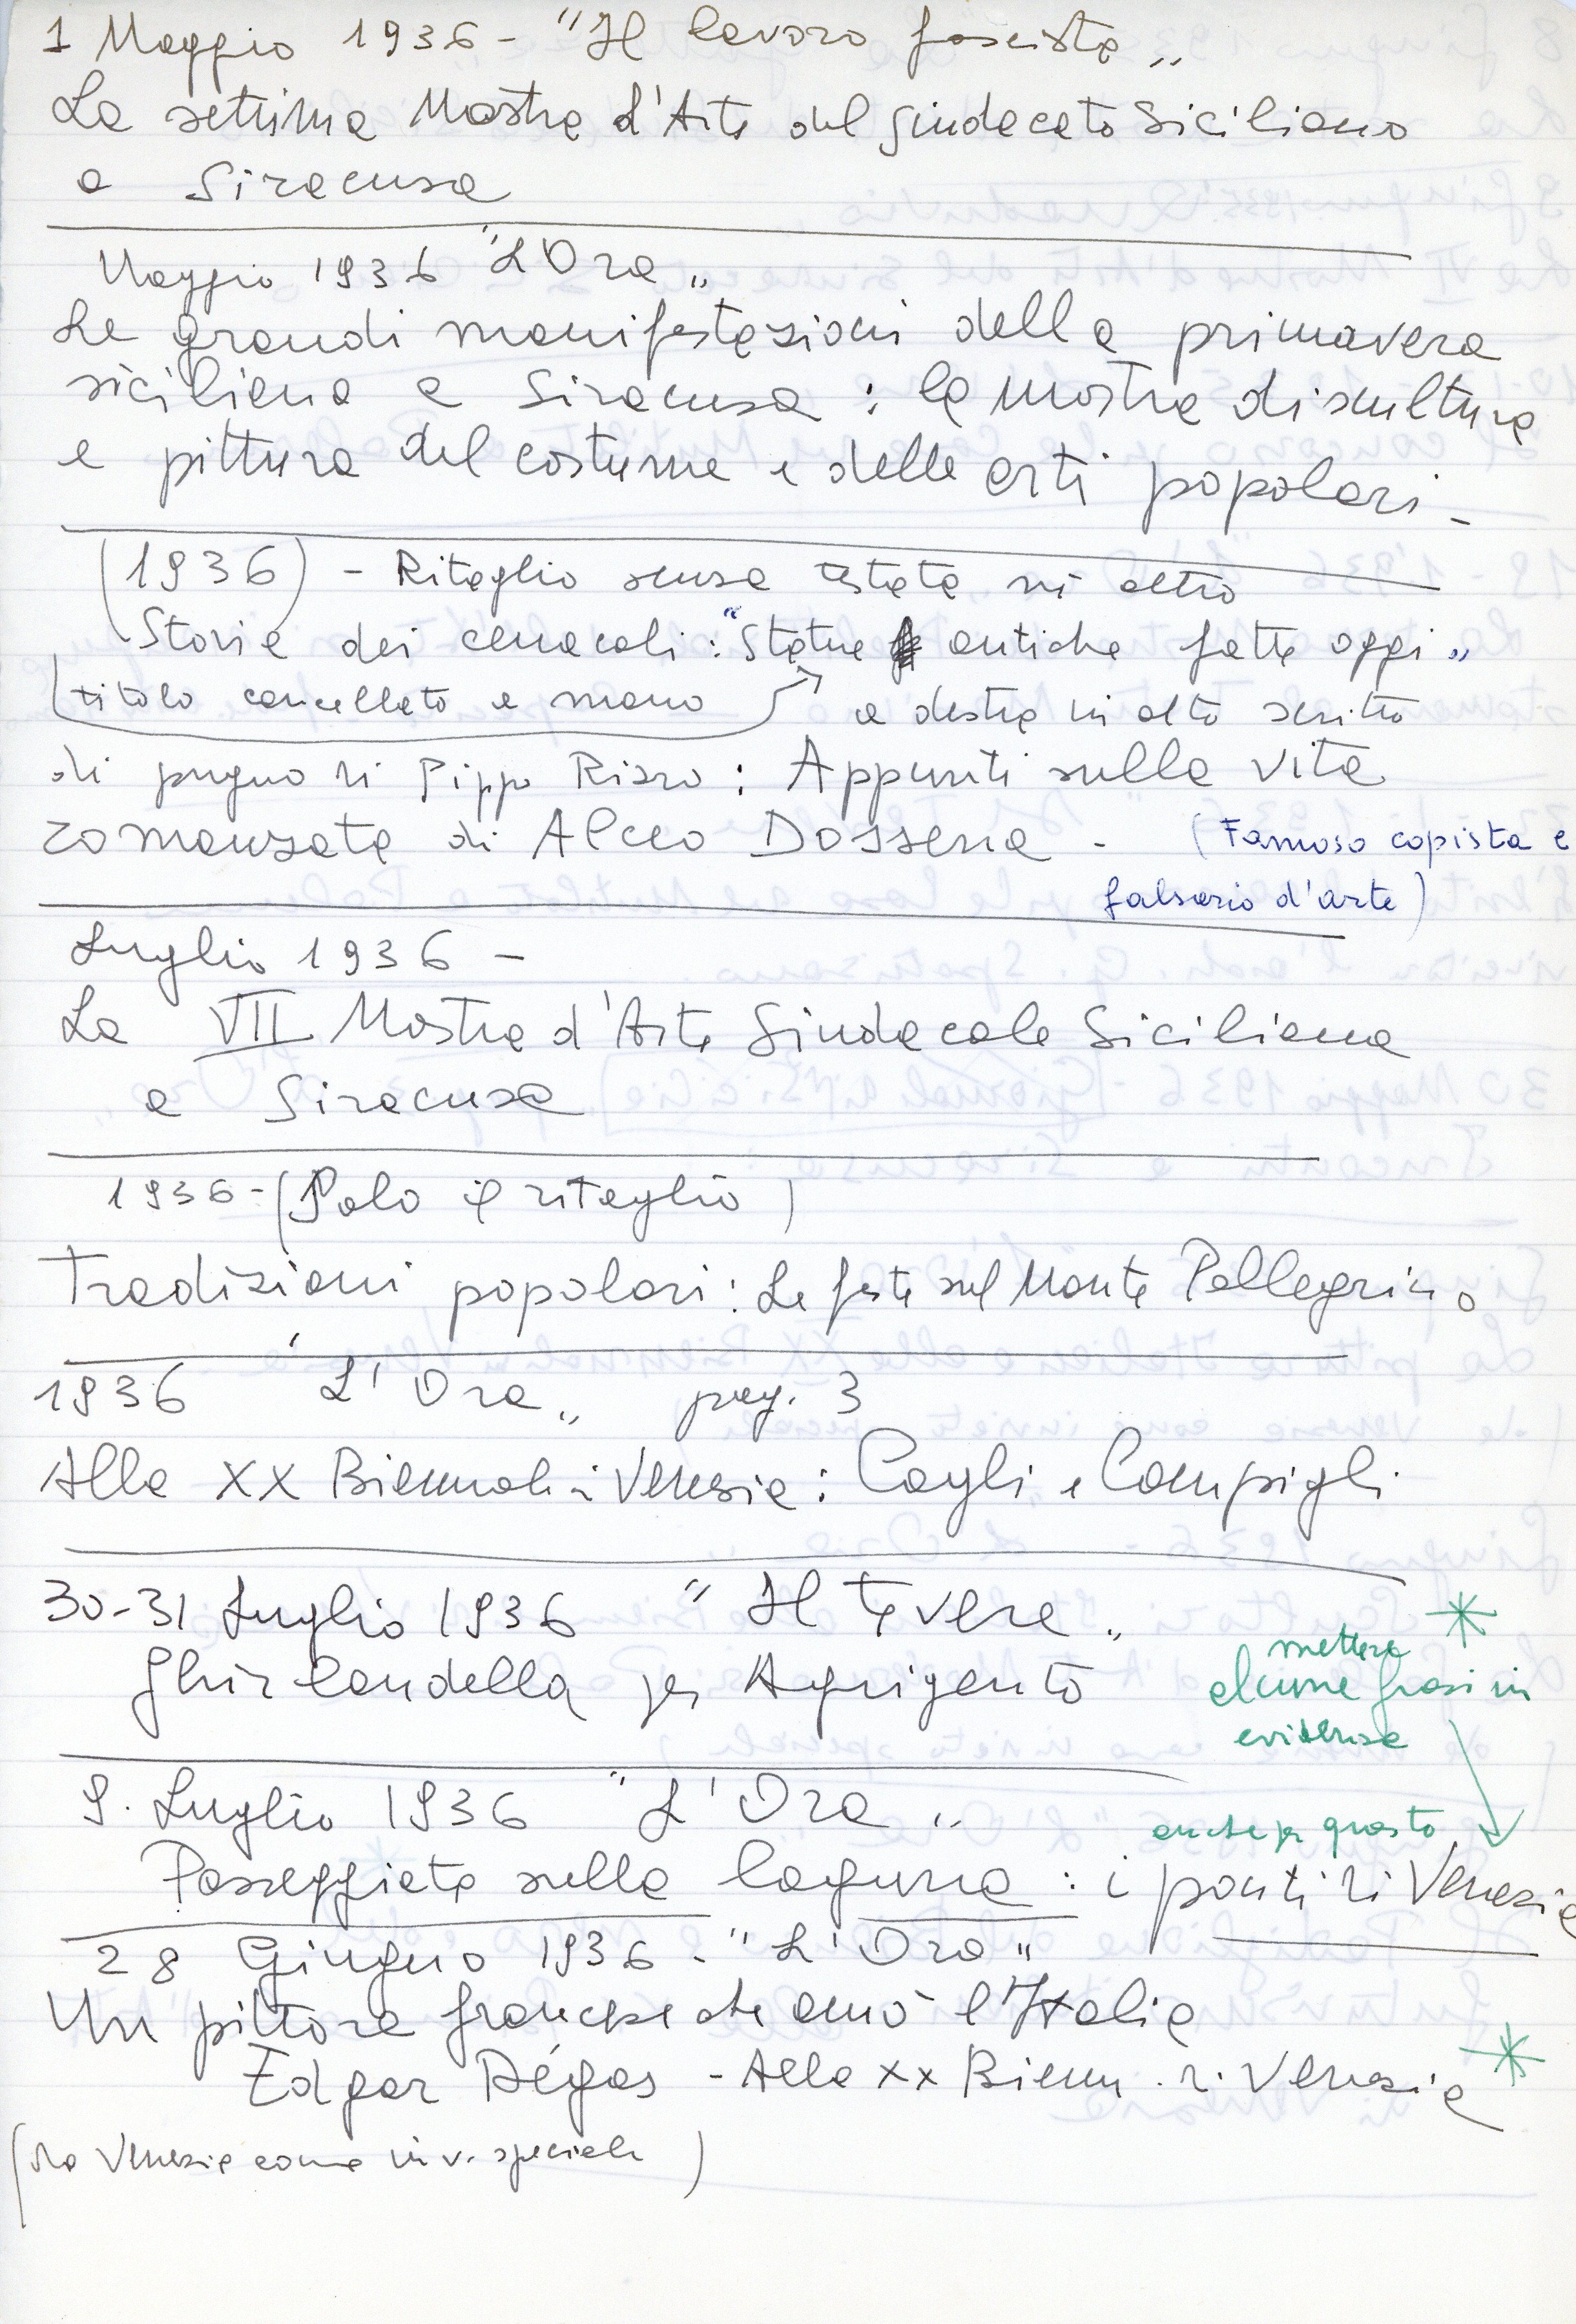 1 Maggio 1936 - "Il lavoro fascista„
La settima Mostra d'Arte del Sindacato Siciliano
a Siracusa
Maggio 1936 "L'Ora„
Le grandi manifestazioni della primavera
siciliana a Siracusa : la mostra di scultura
e pittura del costume e delle arti popolari -
(1936) - Ritaglio senza testata, nè altro
Storie dei cenacoli : "Statue antiche fatte oggi„
titolo cancellato a mano
a destra in alto scritto
di pugno di Pippo Rizzo : Appunti sulla vita
romanzata di Alceo Dossena - (Famoso copista e
falsario d'arte)
Luglio 1936 -
La VII Mostra d'Arte Sindacale Siciliana
a Siracusa
1936 - (Solo il ritaglio)
Tradizioni popolari : Le feste sul Monte Pellegrino
1936 "L'Ora„ pag. 3
Alla XX Biennale di Venezia : Cagli e Campigli
30-31 Luglio 1936 "Il Tevere„
Ghirlandella per Agrigento
* mettere
alcune frasi in
evidenza
9. Luglio 1936 "L'Ora„
anche per questo
Passeggiata sulla laguna : i ponti di Venezia
28 Giugno 1936 - "L'Ora"
Un pittore francese che amò l'Italia
Edgar Dégas - Alla XX Bienn. di Venezia *
(da Venezia come inv. speciale)